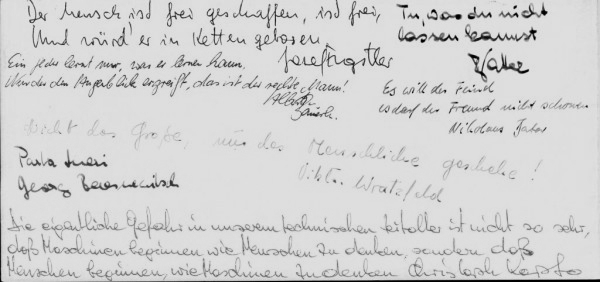 Der Mensch ist frei geschaffen, ist frei,
Und würd' er in Ketten geboren.
Tu, was du nicht
lassen kannst
Ein jeder lernt nur, was er lernen kann.
Wer den Augenblick ergreift, das ist der rechte Mann!
Es will der Feind
es darf der Freund nicht schonen
Nikolaus
Nicht das Große, nur das Menschliche geschehe!
Georg
Die eigentliche Gefahr in unserem technischen Zeitalter ist nicht so sehr,
daß Maschinen beginnen wie Menschen zu denken, sondern daß
Menschen beginnen, wie Maschinen zu denken Christoph